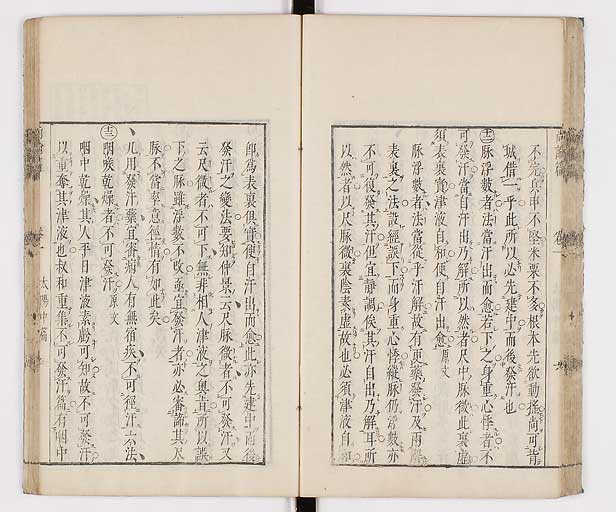 不充兵甲不堅米粟不多根本先欲動搖尚可背
城借一乎此所以必先建中而後發汗也
十二脉浮數者法當汗出而愈若下之身重心悸者不
可發汗當自汗出乃解所以然者尺中脉微此裏虛
須表裏實津液自和便自汗出愈原文
脉浮數者法當從乎汗解故有更藥發汗及兩解
表裏之法設經誤下而身重心悸縱脉仍浮數亦
不可復發其汗但宜靜調俟其汗自出乃解耳所
以然者以尺脉微裏陰素虛故也必須津液自和
卽爲表裏俱實便自汗出而愈此亦先建中而後
發汗之變法要知仲景云尺脉微者不可發汗又
云尺微者不可下無非相人津液之奥旨所以誤
下之脉雖浮數不改亟宜發汗者亦必審諦其尺
脉不當率意徑情有如此矣
凡用發汗藥宜審病人有無宿疾不可徑汗六法
十三咽喉乾燥者不可發汗原文
咽中乾燥其人平日津液素虧可知故不可發汗
以重奪其津液也叔和重集不可發汗篇有咽中
太陽中篇